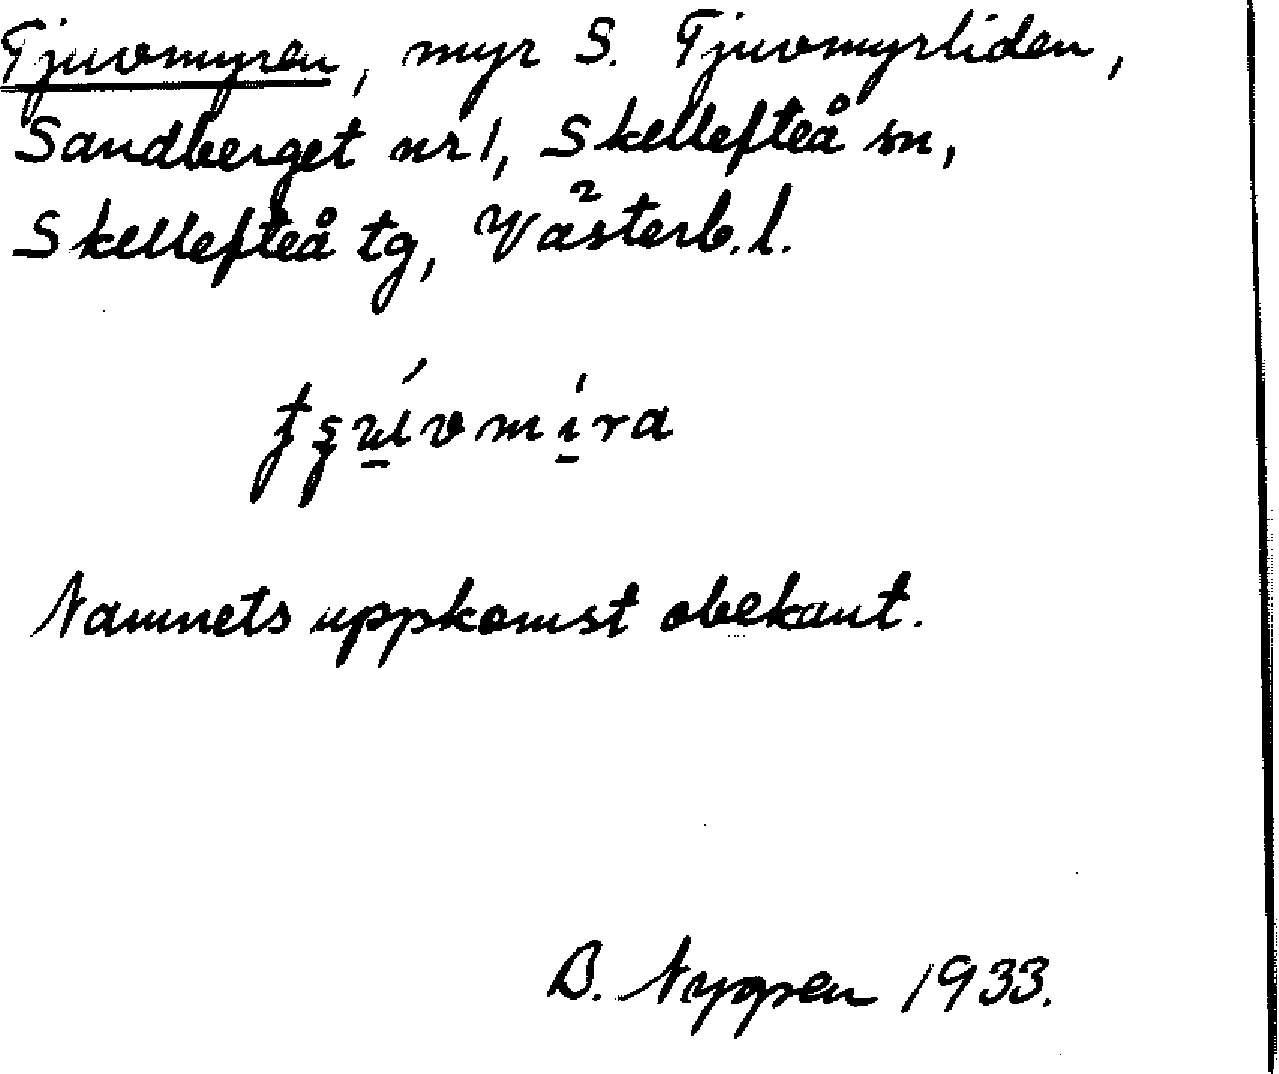 Tjuvmyren, myr S. Tjuvmyrliden,
Sandberget nr 1, Skellefteå sn,
Skellefteå tg, Västerb. l.
Namnets uppkomst obekant.
B. Nygren 1933.